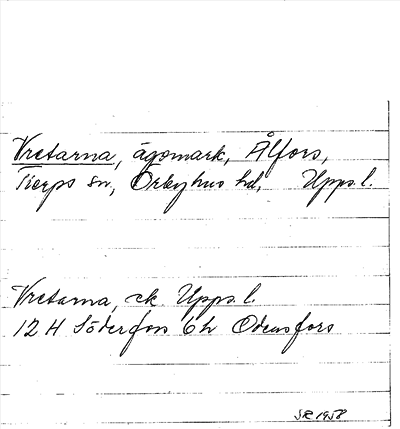 Vretarna, ägomark, Ålfors,
Tierps sn, Örbyhus hd, Upps. l.
Vretarna, ek Upps. l.
12 H Söderfors 6 h Odensfors
SR 1958